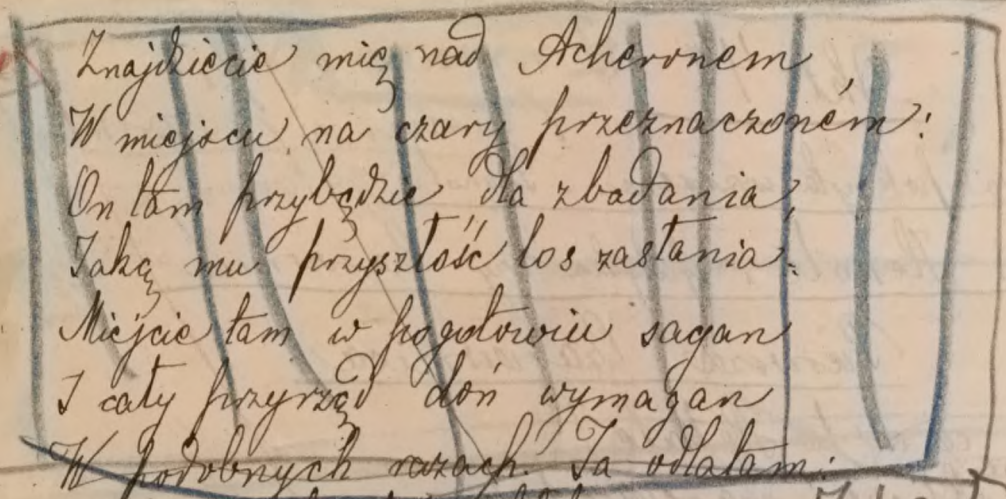 Znajdziecie mię nad Acheronem
W miejscu na czary przeznaczoném:
On tam przybędzie dla zbadania,
Jaką mu przyszłość los zasłania.
Miéjcie tam w pogotowiu sagan
I cały przyrząd doń wymagan
W podobnych razach. Ja odlatam: